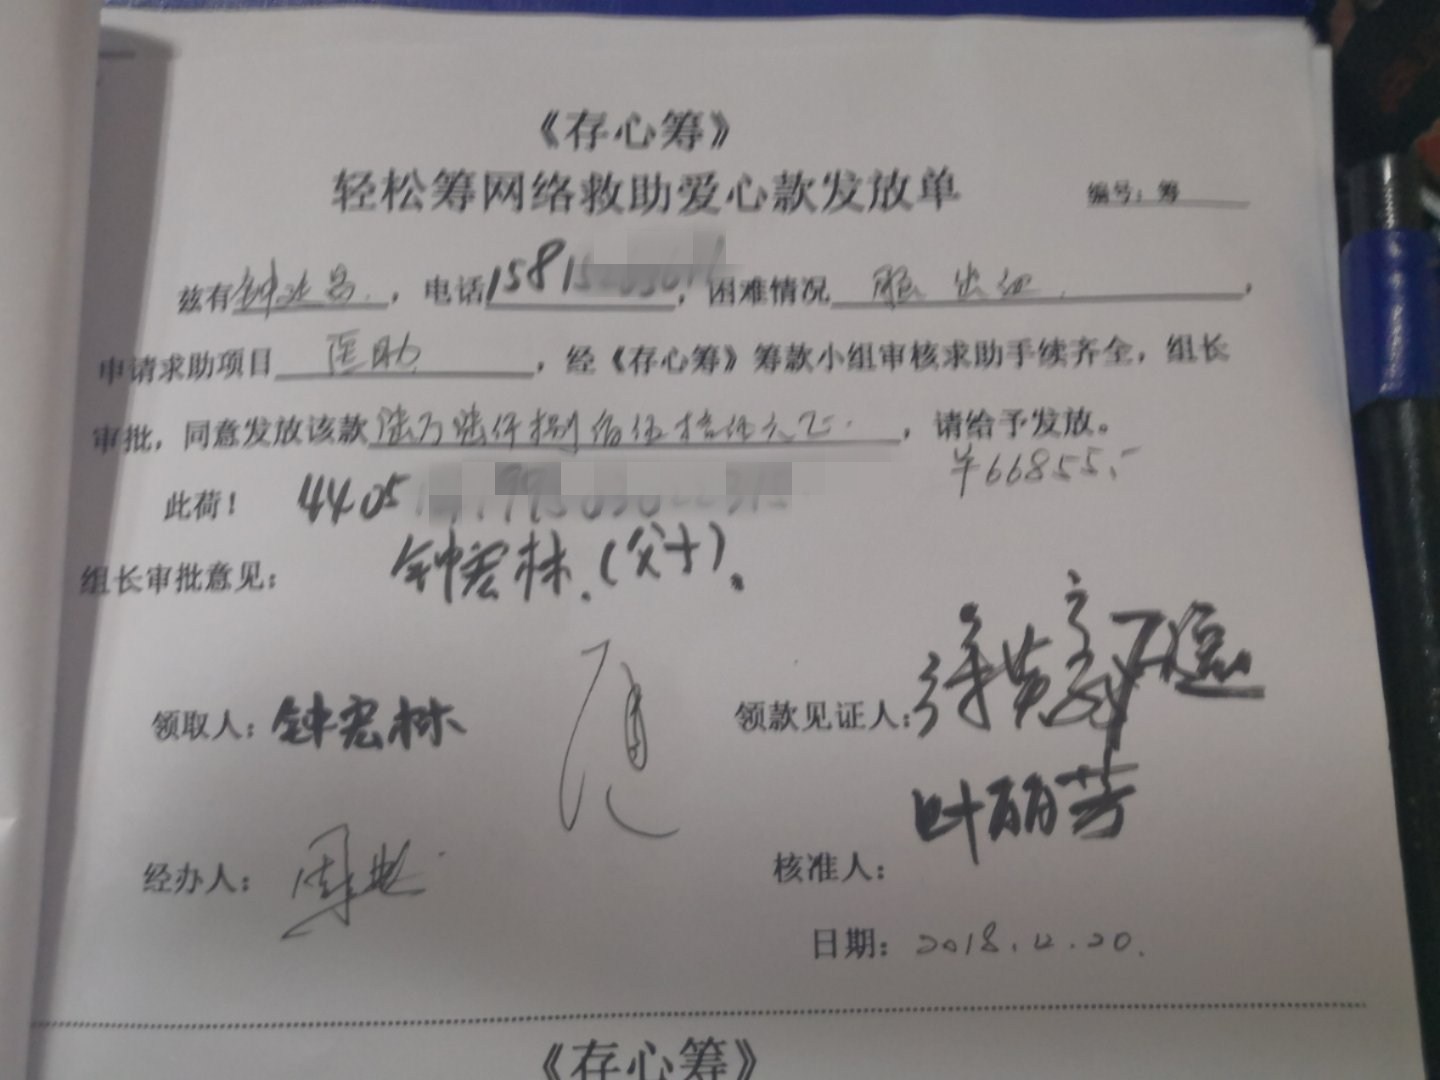 《存心筹》
轻松筹网络救助爱心款发放单 编号：筹
兹有钟, 电话15815, 困难情况,
申请求助项目 医助, 经《存心筹》筹款小组审核求助手续齐全，组长
审批，同意发放该款陆万陆仟捌佰伍拾伍元正.，请给予发放。
￥66855.-
此荷！ 4405
组长审批意见： 钟宏林.(父子)。
领取人：钟宏林 领款见证人：
叶丽芳
经办人： 核准人：
日期：2018.12.20.
《存心筹》